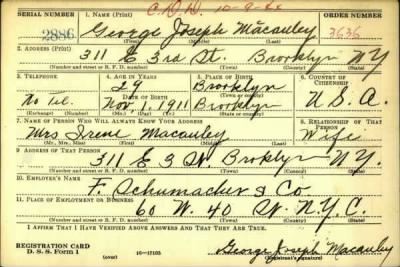 SERIAL NUMBER 1. NAME (Print) C.D.D. 10-9-44 ORDER NUMBER
2886 George Joseph Macauley 3636
2. ADDRESS (Print)
311 E 3rd St. Brooklyn NY
(Number and street or R. F. D. number) (Town) (County) (State)
3. TELEPHONE 4. AGE IN YEARS 5. PLACE OF BIRTH 6. COUNTRY OF CITIZENSHIP
Brooklyn
DATE OF BIRTH (Town or county)
No Tel. Nov. 1, 1911 Brooklyn U.S.A.
(Exchange) (Number) (Mo.) (Day) (Yr.) (State or country)
7. NAME OF PERSON WHO WILL ALWAYS KNOW YOUR ADDRESS 8. RELATIONSHIP OF THAT PERSON
Mrs Irene Macauley Wife
(Mr., Mrs., Miss) (First) (Middle) (Last)
9. ADDRESS OF THAT PERSON
311 E 3 St. Broklyn N.Y.
(Number and street or R. F. D. number) (Town) (County) (State)
10. EMPLOYER'S NAME
F. Schumacher & Co
11. PLACE OF EMPLOYMENT OR BUSINESS
60 W. 40 St. N.Y.C.
(Number and street or R. F. D. number) (Town) (County) (State)
I AFFIRM THAT I HAVE VERIFIED ABOVE ANSWERS AND THAT THEY ARE TRUE.
REGISTRATION CARD
D. S. S. FORM 1 (over) 16-17105 George Joseph Macauley
(Registrant's signature)